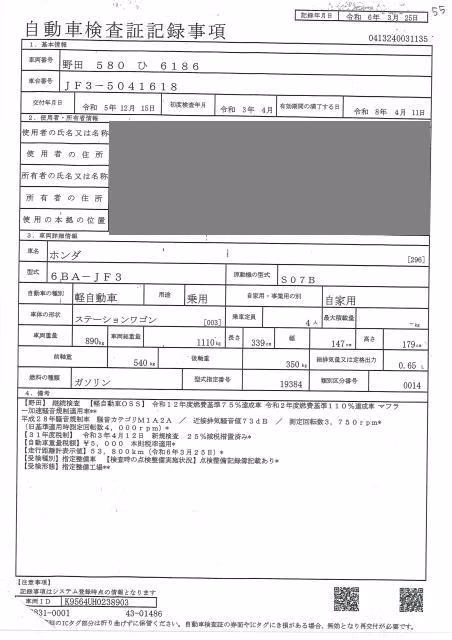 55
記録年月日 令和 6年 3月 25日
自動車検査証記録事項
0413240031135
1. 基本情報
車両番号 野田 580 ひ 6186
車台番号 JF3-5041618
交付年月日 令和 5年 12月 15日 初度検査年月 令和 3年 4月 有効期間の満了する日 令和 8年 4月 11日
2. 使用者・所有者情報
使用者の氏名又は名称
使用者の住所
所有者の氏名又は名称
所有者の住所
使用の本拠の位置
3. 車両詳細情報
車名 ホンダ [296]
型式 6BA-JF3 原動機の型式 S07B
自動車の種別 軽自動車 用途 乗用 自家用・事業用の別 自家用
車体の形状 ステーションワゴン [003] 乗車定員 4人 最大積載量 -kg
車両重量 890kg 車両総重量 1110kg 長さ 339cm 幅 147cm 高さ 179cm
前軸重 540kg 後軸重 350kg 総排気量又は定格出力 0.65 L
燃料の種類 ガソリン 型式指定番号 19384 類別区分番号 0014
4. 備考
【野田】 継続検査 【軽自動車OSS】 令和12年度燃費基準75%達成車 令和2年度燃費基準110%達成車 マフラ
ー加速騒音規制適用車**
平成28年騒音規制車 騒音カテゴリM1A2A / 近接排気騒音値73dB / 測定回転数3,750rpm*
(旧基準適用時測定回転数4,000rpm)*
【31年度税制】 令和3年4月12日 新規検査 25%減税措置済み*
【自動車重量税額】¥5,000 本則税率適用*
【走行距離計表示値】53,800km(令和6年3月25日)*
【受検種別】指定整備車 【検査時の点検整備実施状況】点検整備記録簿記載あり*
【受検形態】指定整備工場**
【注意事項】
記録事項はシステム登録時点の情報となります
車両ID K9564UH0238903
831-0001 43-01486
ICタグ部分は折り曲げずに保管ください。自動車検査証の券面やICタグにき損がある場合、無効となり再交付が必要です。